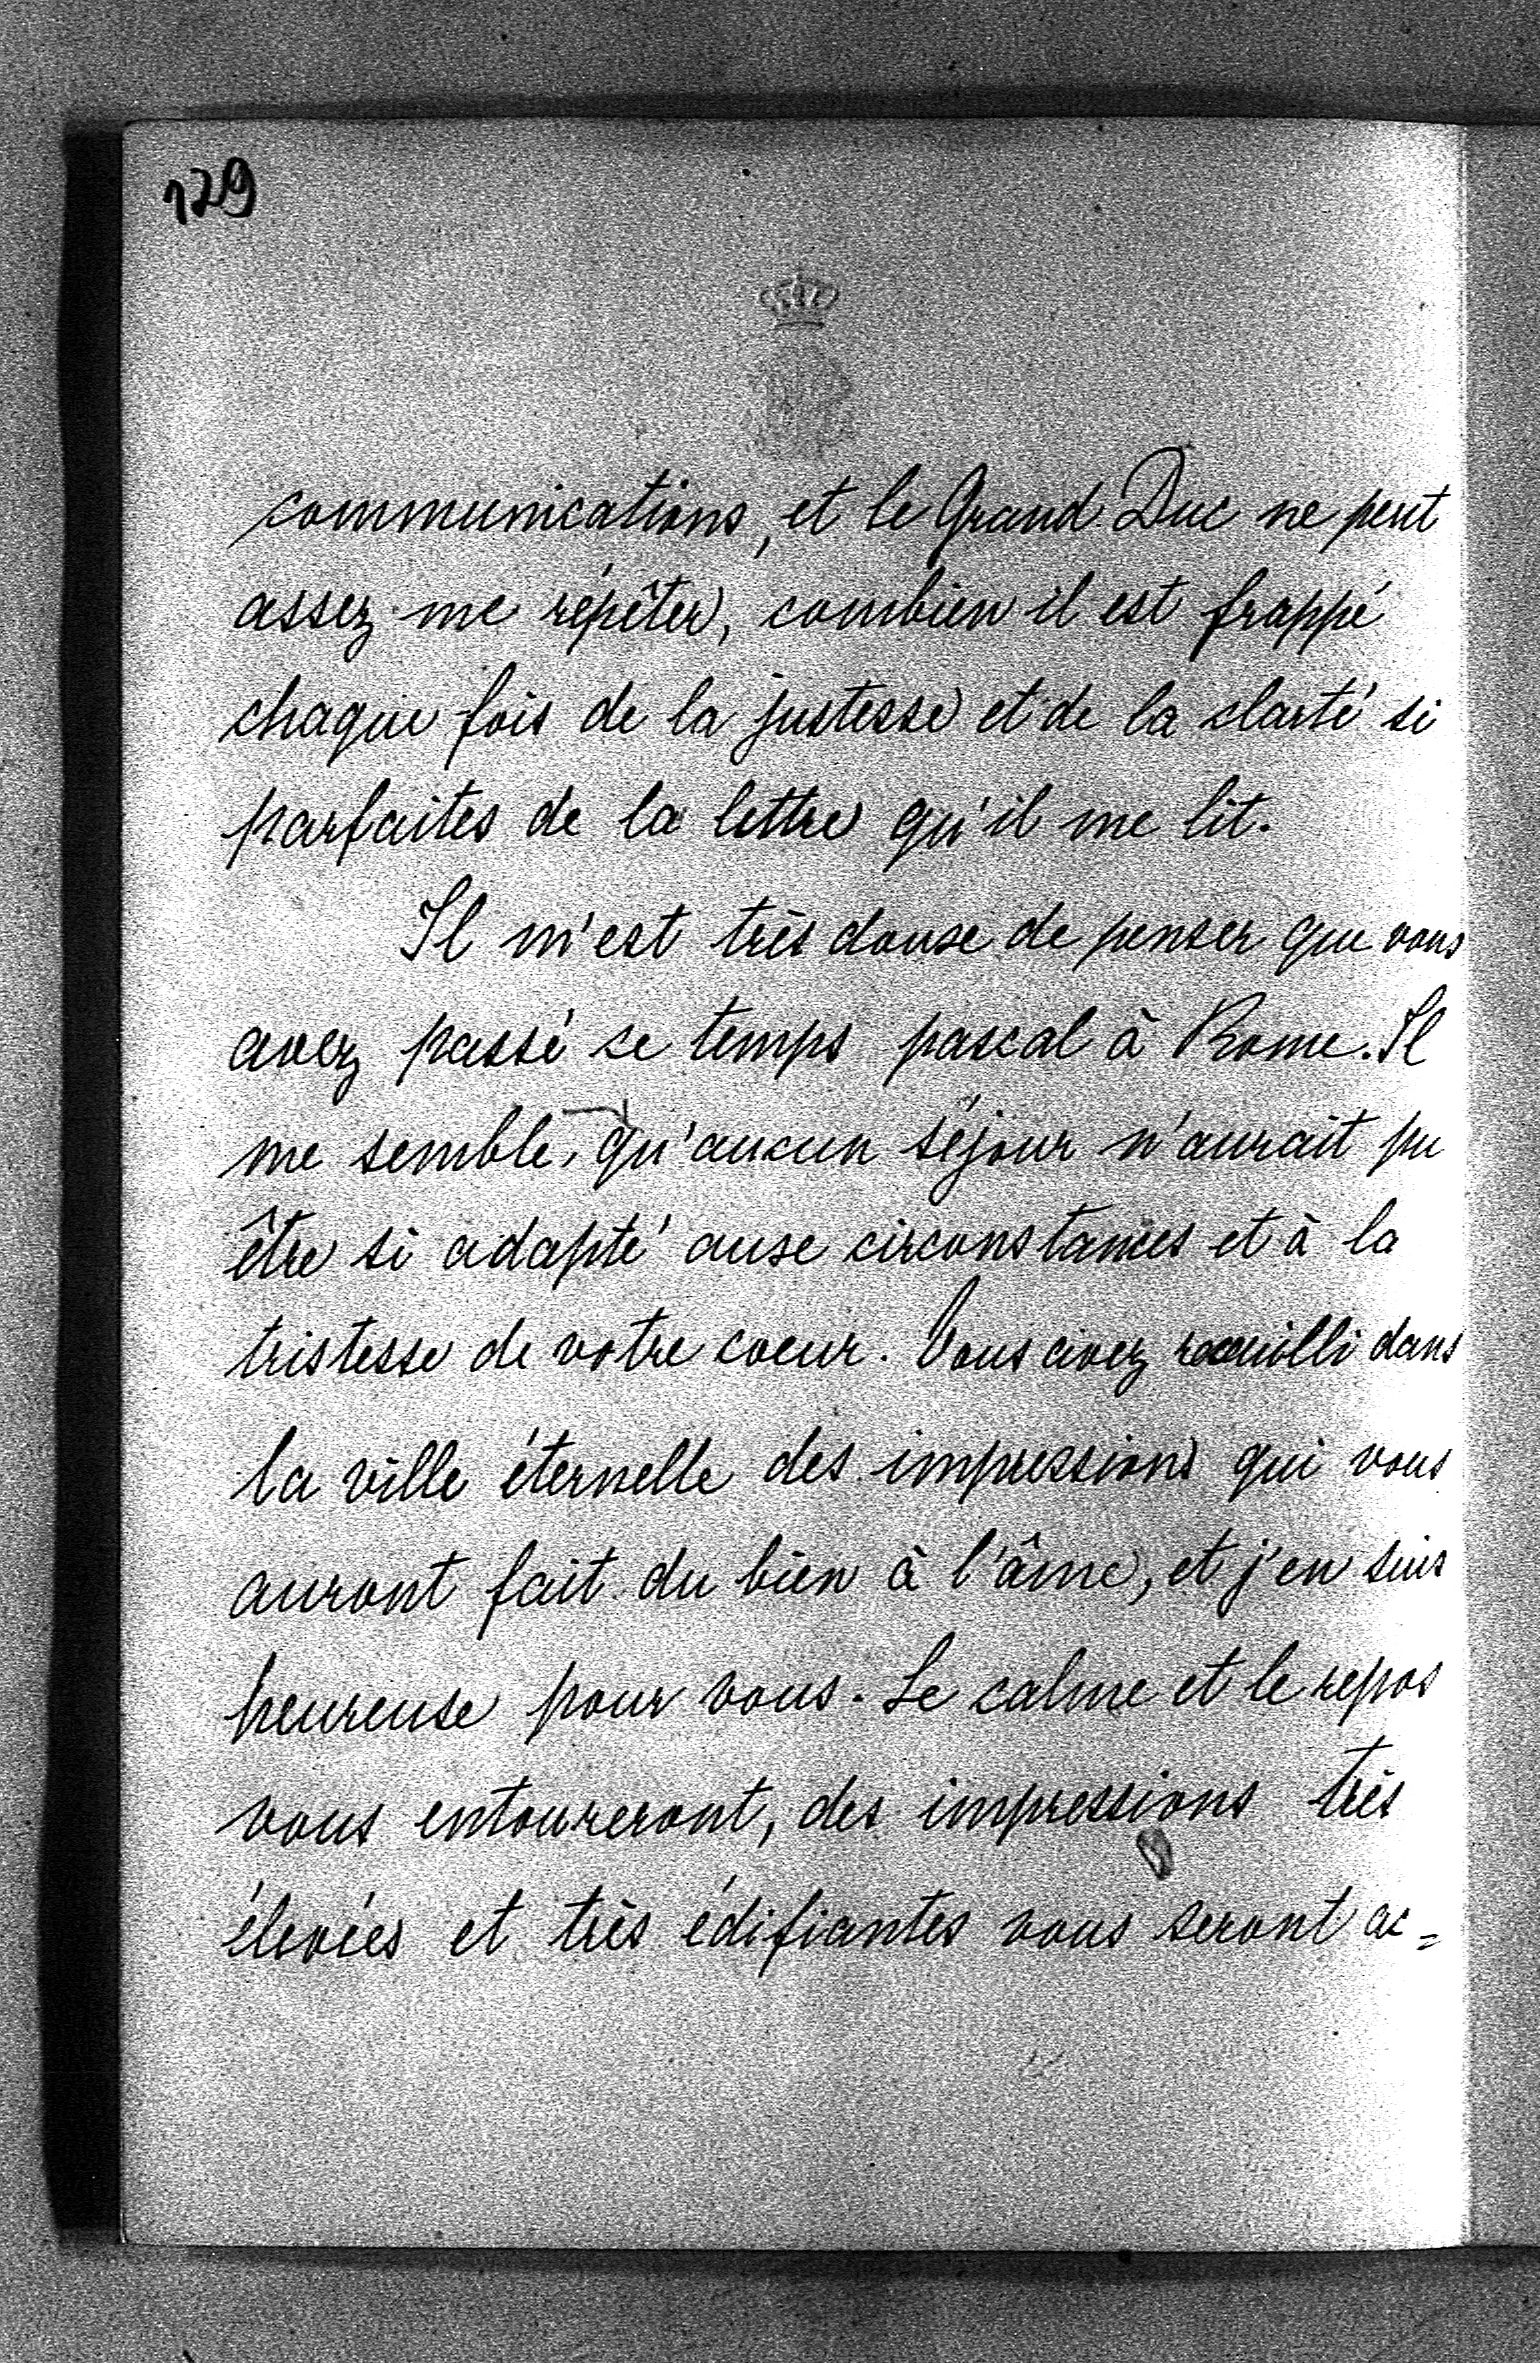 129
communications, et le Grand Duc ne peut
assez me répéter, combien il est frappé
chaque fois de la justesse et de la clarté si
parfaites de la lettre qu'il me lit.
Il m'est très doux de penser que vous
avez passé ce temps pascal à Rome. Il
me semble, qu'aucun séjour n'aurait pu
être si adapté aux circonstances et à la
tristesse de votre coeur. Vous avez recueilli dans
la ville éternelle des impressions qui vous
auront fait du bien à l'âme, et j'en suis
heureuse pour vous. Le calme et le repos
vous entoureront, des impressions très
élevées et très édifiantes vous seront ac=